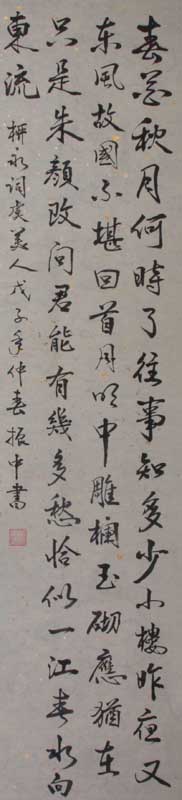 春花秋月何時了往事知多少小樓昨夜又
东風故國不堪回首月明中雕欄玉砌應猶在
只是朱顔改問君能有幾多愁恰似一江春水向
東流
柳永詞虞美人戊子年仲春振中書